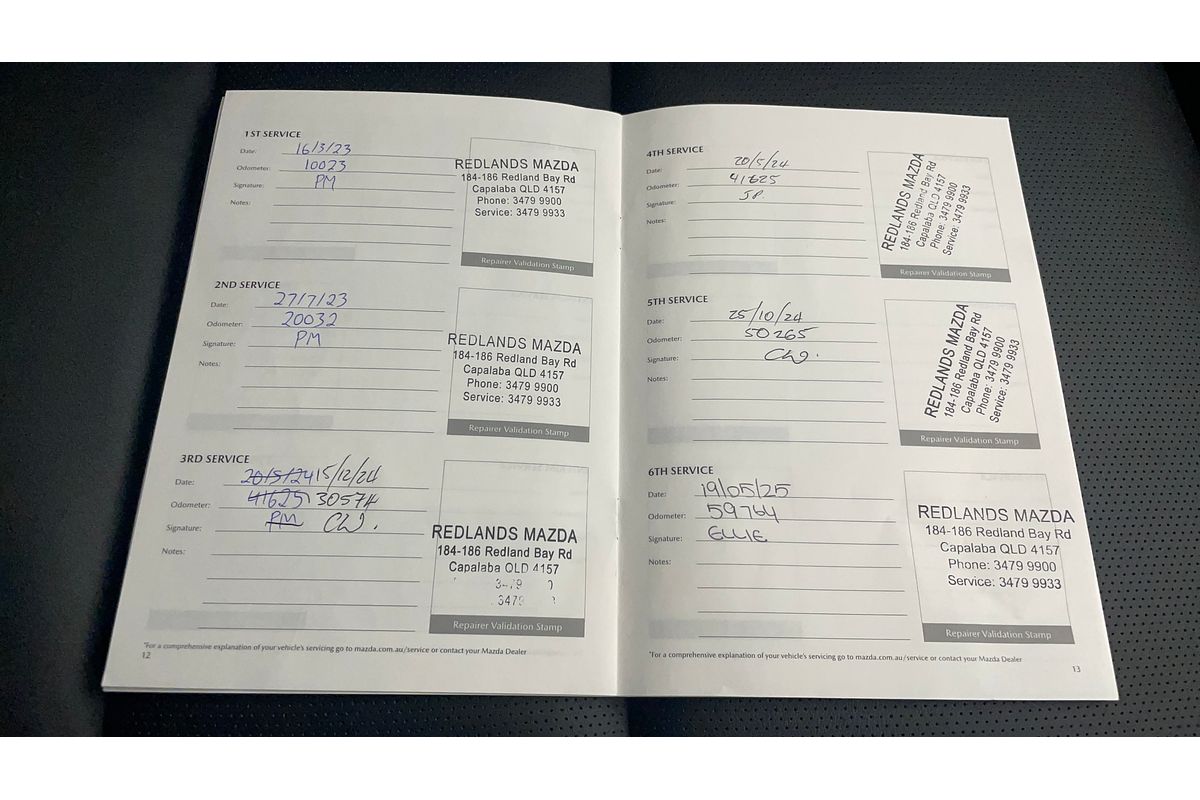 1ST SERVICE
Date: 16/3/23
Odometer: 10023
Signature: PM
Notes:
REDLANDS MAZDA
184-186 Redland Bay Rd
Capalaba QLD 4157
Phone: 3479 9900
Service: 3479 9933
Repairer Validation Stamp
2ND SERVICE
Date: 27/7/23
Odometer: 20032
Signature: PM
Notes:
REDLANDS MAZDA
184-186 Redland Bay Rd
Capalaba QLD 4157
Phone: 3479 9900
Service: 3479 9933
Repairer Validation Stamp
3RD SERVICE
Date: 20/5/24 15/12/24
Odometer: 41625 30574
Signature: PM CW.
Notes:
REDLANDS MAZDA
184-186 Redland Bay Rd
Capalaba QLD 4157
3479
Repairer Validation Stamp
*For a comprehensive explanation of your vehicle's servicing go to mazda.com.au/service or contact your Mazda Dealer
12
4TH SERVICE
Date: 20/5/24
Odometer: 41625
Signature: JP.
Notes:
REDLANDS MAZDA
184-186 Redland Bay Rd
Capalaba QLD 4157
Phone: 3479 9900
Service: 3479 9933
Repairer Validation Stamp
5TH SERVICE
Date: 25/10/24
Odometer: 50265
Signature: CW.
Notes:
REDLANDS MAZDA
184-186 Redland Bay Rd
Capalaba QLD 4157
Phone: 3479 9900
Service: 3479 9933
Repairer Validation Stamp
6TH SERVICE
Date: 19/05/25
Odometer: 59764
Signature: ELLIE
Notes:
REDLANDS MAZDA
184-186 Redland Bay Rd
Capalaba QLD 4157
Phone: 3479 9900
Service: 3479 9933
Repairer Validation Stamp
*For a comprehensive explanation of your vehicle's servicing go to mazda.com.au/service or contact your Mazda Dealer
13